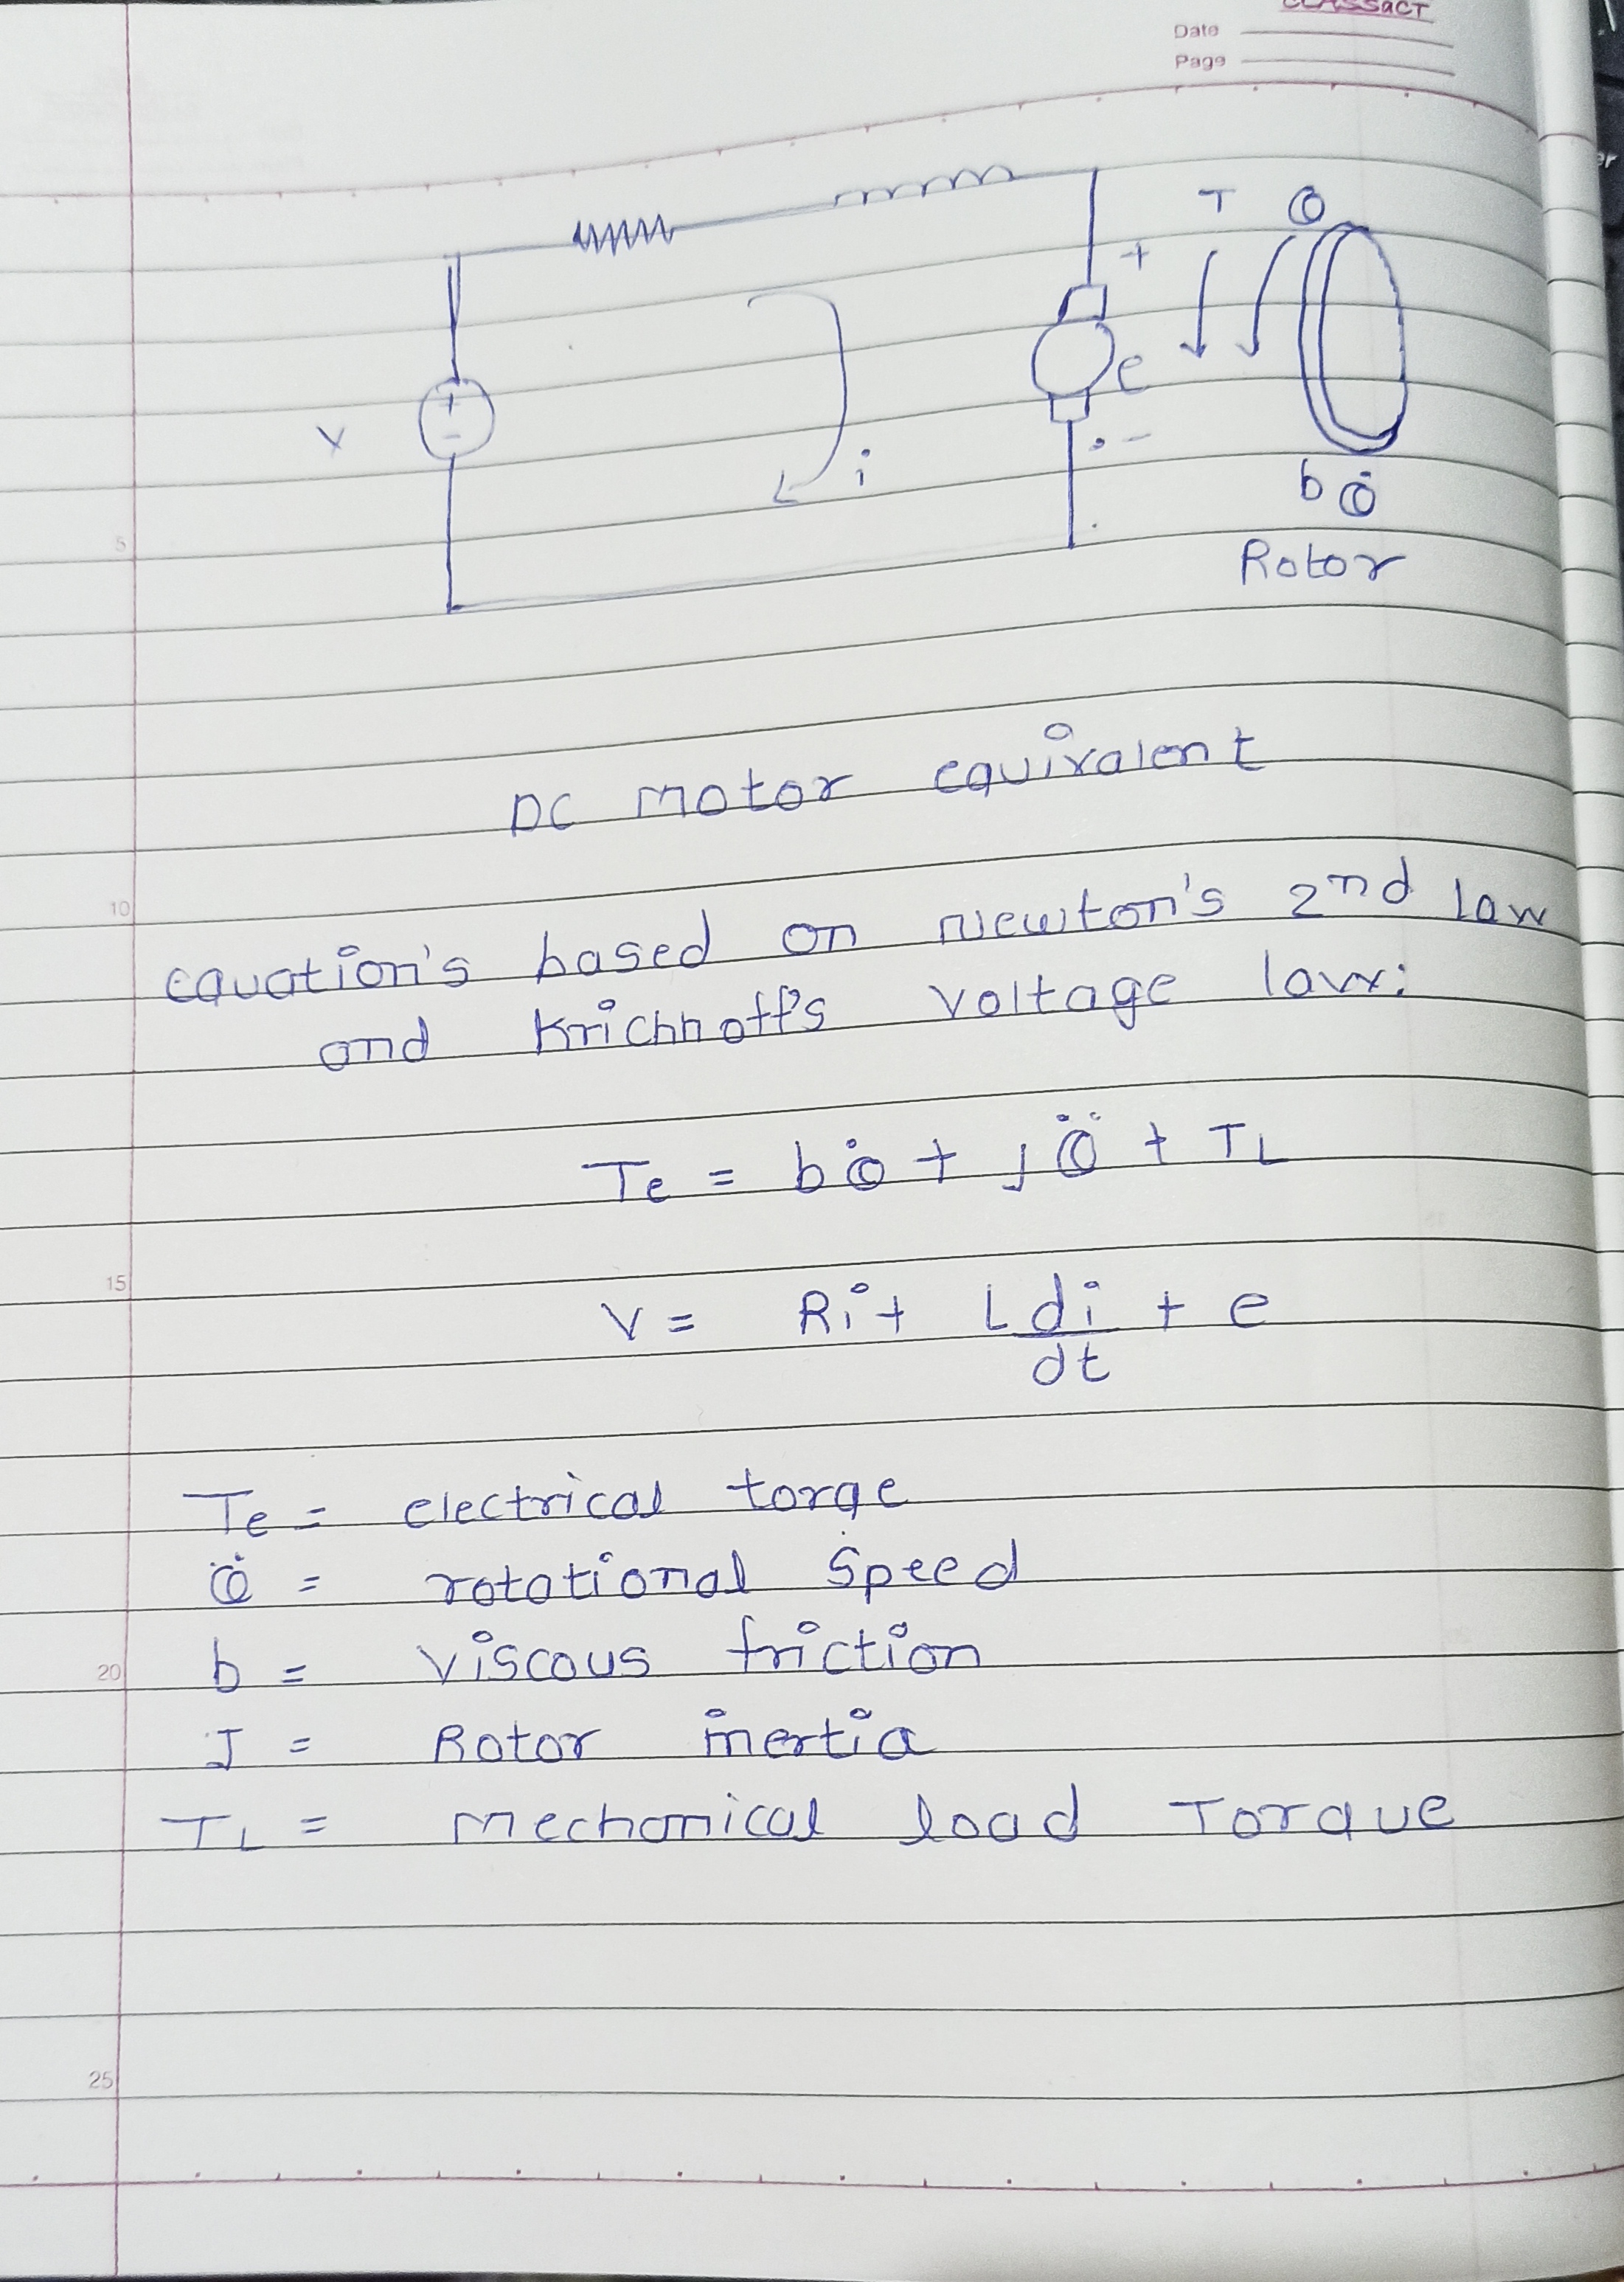 classact
Date
Page
T θ
+
V
+
-
e
i
-
bθ̇
Rotor
5
DC motor equivalent
10
equation's based on Newton's 2nd law
and Krichhoff's voltage law:
Te = bθ̇ + Jθ̈ + TL
15
V = Ri + L di/dt + e
Te = electrical torqe
θ̈ = rotational speed
20
b = viscous friction
J = Rotor inertia
TL = mechanical load Torque
25